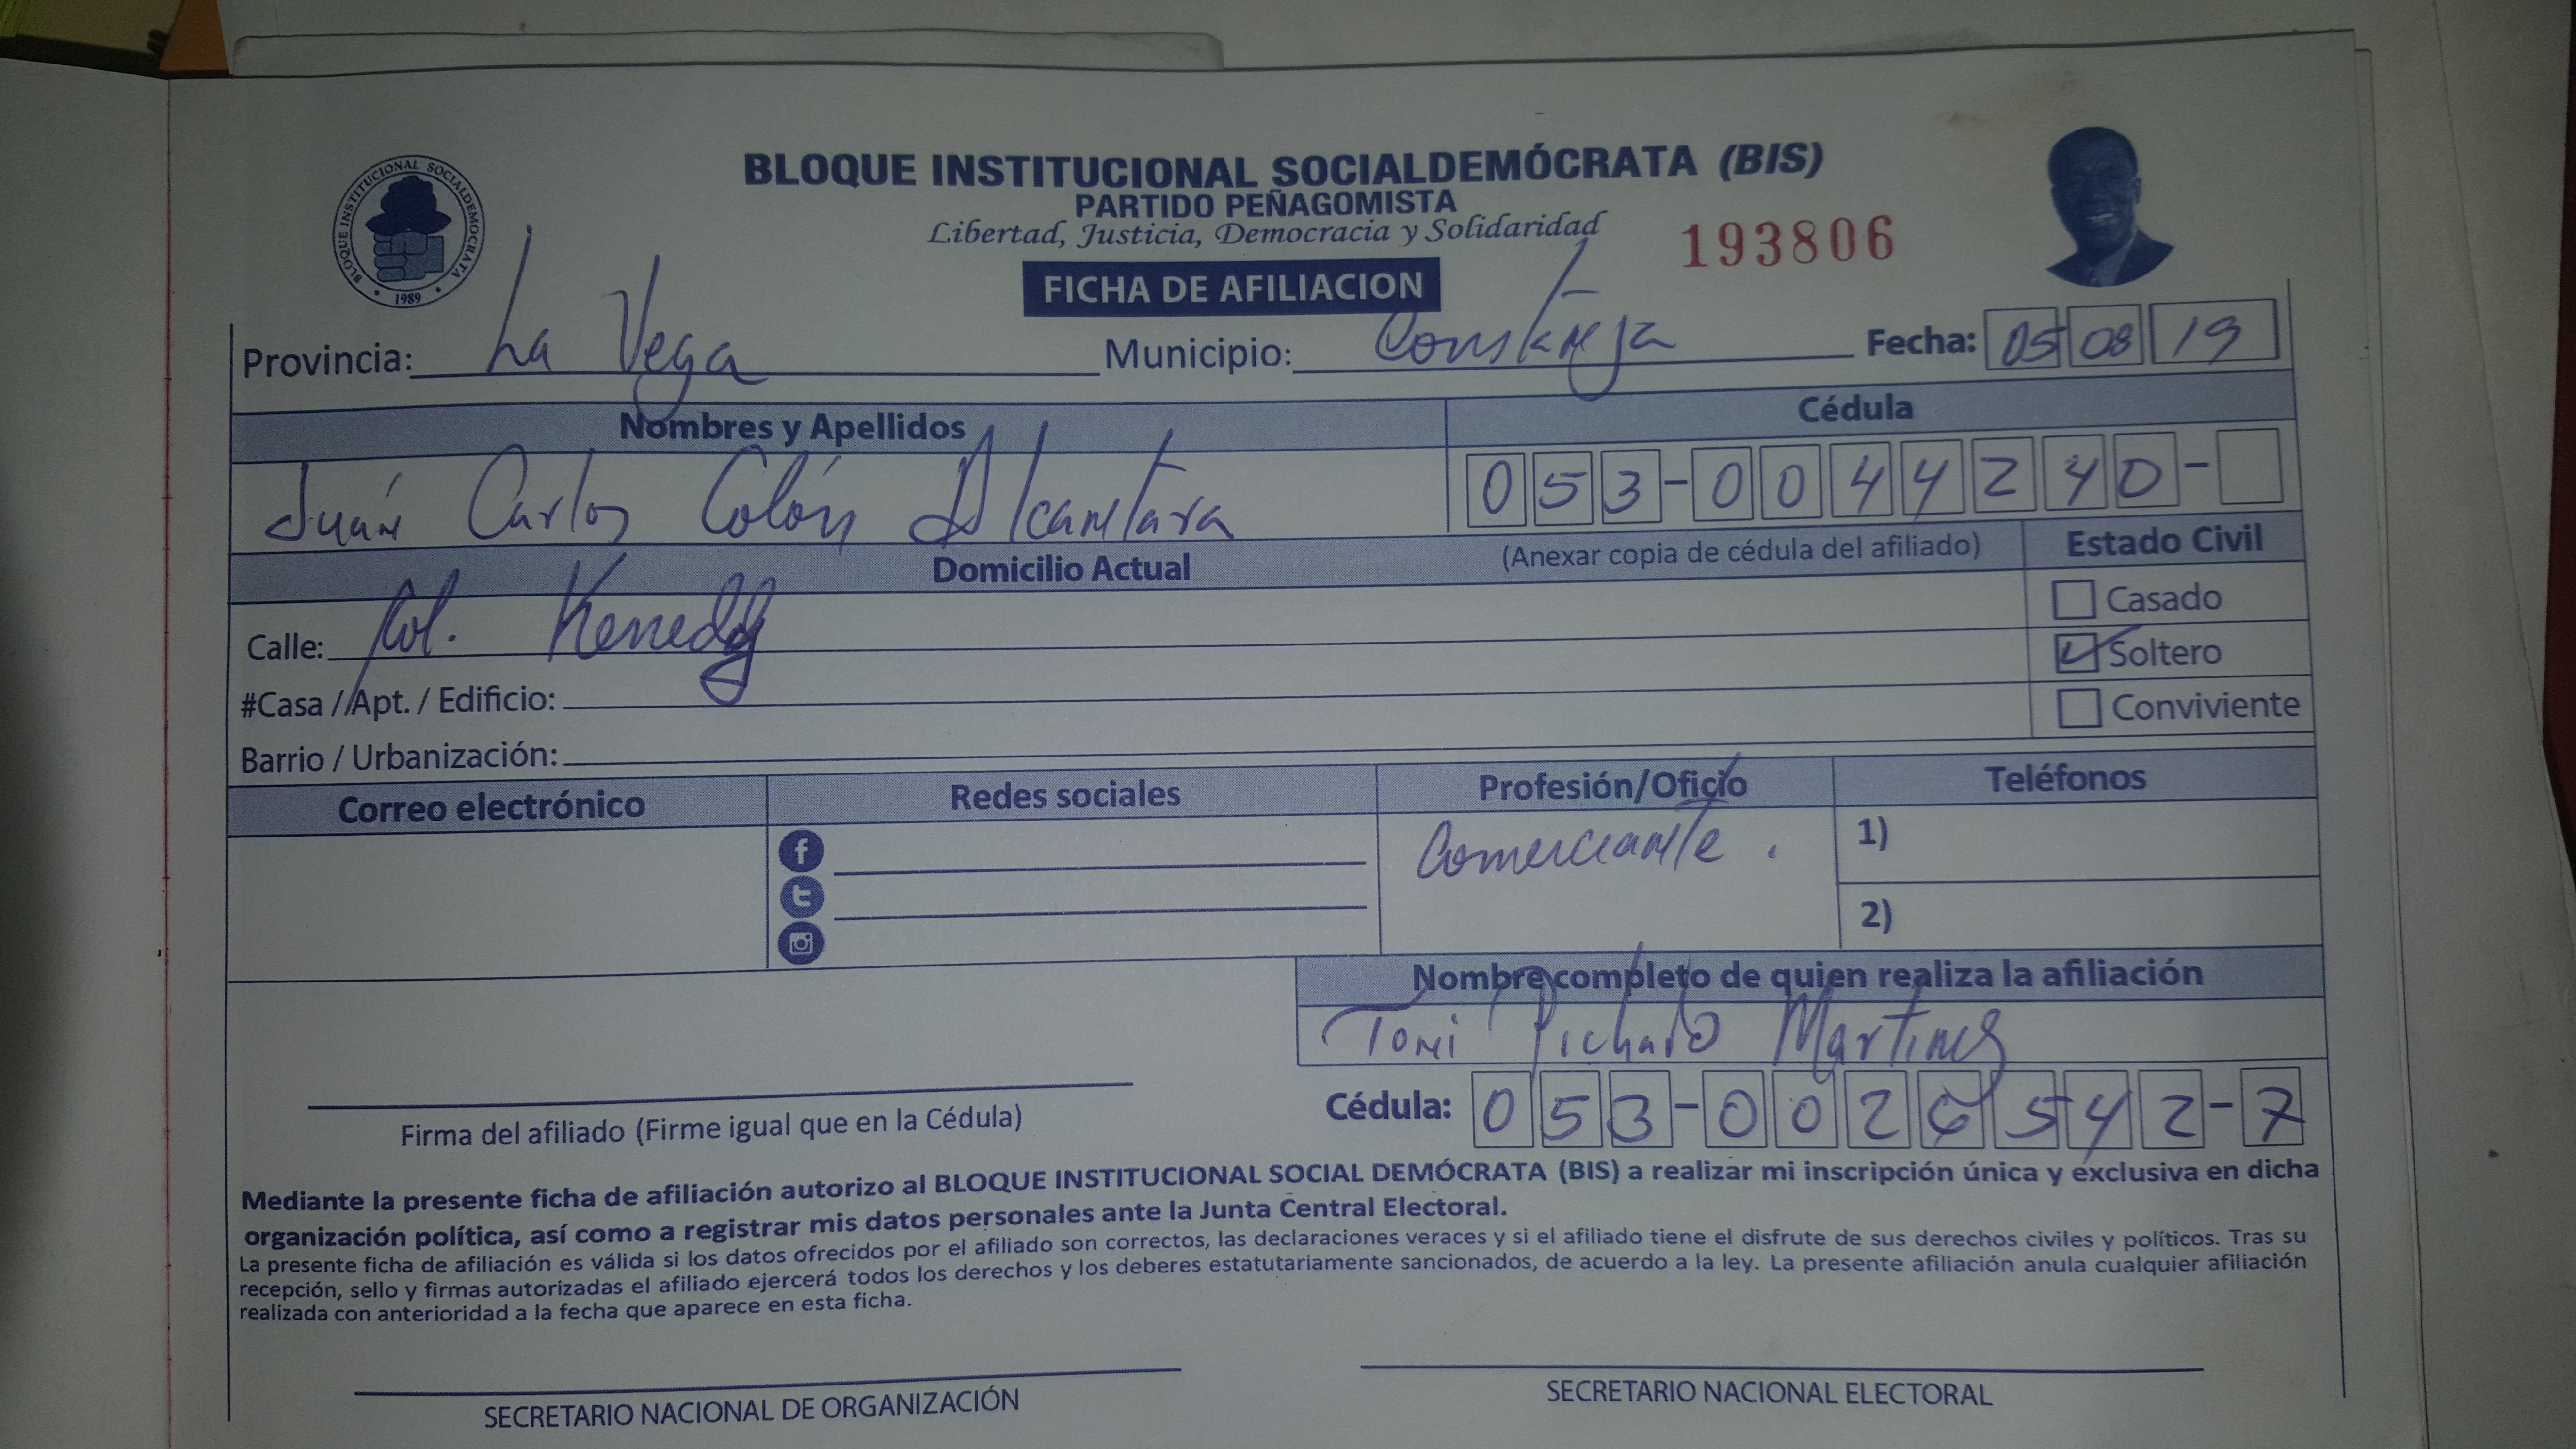 BLOQUE INSTITUCIONAL SOCIALDEMOCRATA
1989
BLOQUE INSTITUCIONAL SOCIALDEMÓCRATA (BIS)
PARTIDO PEÑAGOMISTA
Libertad, Justicia, Democracia y Solidaridad
193806
FICHA DE AFILIACION
Provincia: La Vega Municipio: Constanza Fecha: 05 08 19
Nombres y Apellidos Cédula
Juán Carlos Colón Alcantara 053-0044240-
Domicilio Actual (Anexar copia de cédula del afiliado) Estado Civil
Casado
Calle: Col. Kenedy Soltero
#Casa / Apt. / Edificio: Conviviente
Barrio / Urbanización:
Correo electrónico Redes sociales Profesión/Oficio Teléfonos
Comerciante. 1)
2)
Nombre completo de quien realiza la afiliación
Toni Pichardo Martinez
Cédula: 053-0026542-7
Firma del afiliado (Firme igual que en la Cédula)
Mediante la presente ficha de afiliación autorizo al BLOQUE INSTITUCIONAL SOCIAL DEMÓCRATA (BIS) a realizar mi inscripción única y exclusiva en dicha
organización política, así como a registrar mis datos personales ante la Junta Central Electoral.
La presente ficha de afiliación es válida si los datos ofrecidos por el afiliado son correctos, las declaraciones veraces y si el afiliado tiene el disfrute de sus derechos civiles y políticos. Tras su
recepción, sello y firmas autorizadas el afiliado ejercerá todos los derechos y los deberes estatutariamente sancionados, de acuerdo a la ley. La presente afiliación anula cualquier afiliación
realizada con anterioridad a la fecha que aparece en esta ficha.
SECRETARIO NACIONAL DE ORGANIZACIÓN SECRETARIO NACIONAL ELECTORAL